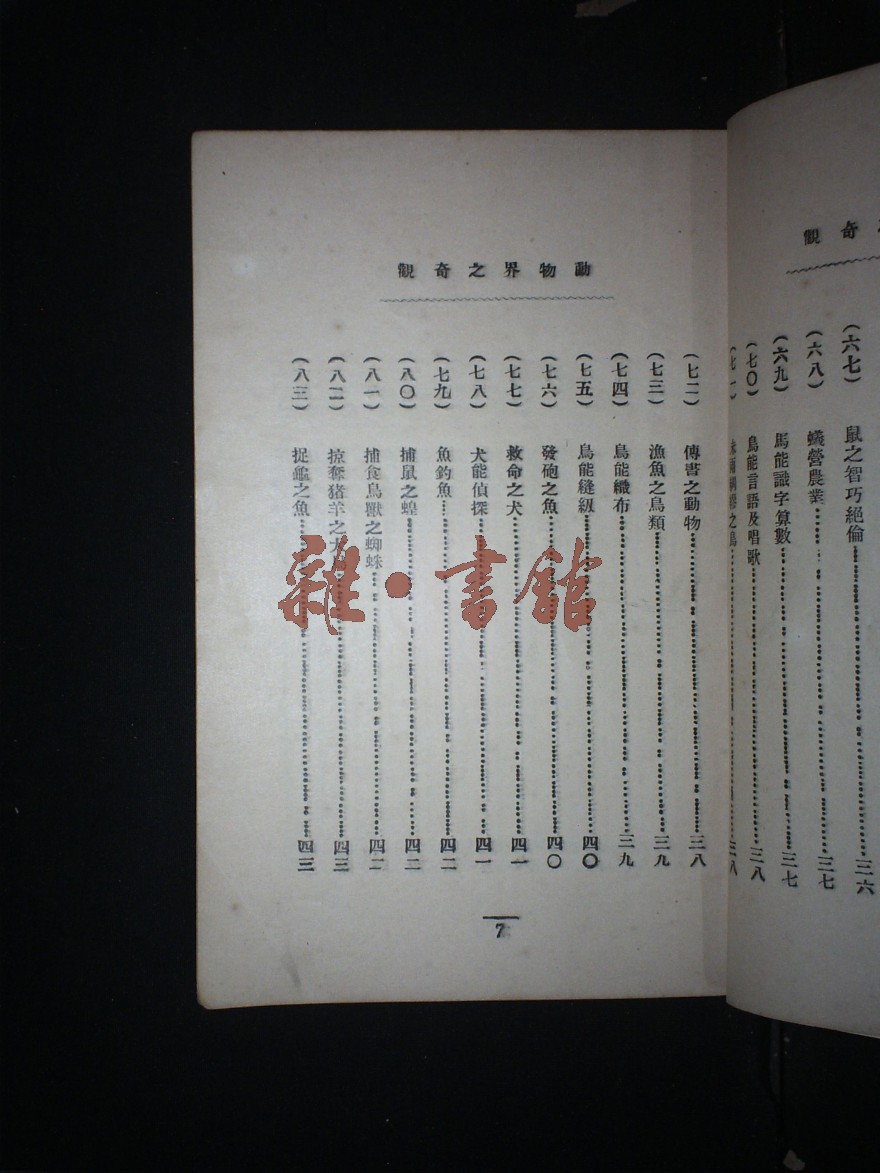 奇觀
(六七) 鼠之智巧絕倫 三六
(六八) 蟻營農業 三七
(六九) 馬能識字算數 三七
(七〇) 鳥能言語及唱歌 三八
(七一) 之鳥 三八
動物界之奇觀
(七二) 傳書之動物 三八
(七三) 漁魚之鳥類 三九
(七四) 鳥能織布 三九
(七五) 鳥能縫級 四〇
(七六) 發砲之魚 四〇
(七七) 救命之犬 四一
(七八) 犬能偵探 四一
(七九) 魚釣魚 四二
(八〇) 捕鼠之蝗 四二
(八一) 捕食鳥獸之蜘蛛 四二
(八二) 掠奪猪羊之大 四三
(八三) 捉龜之魚 四三
7
雜·書館